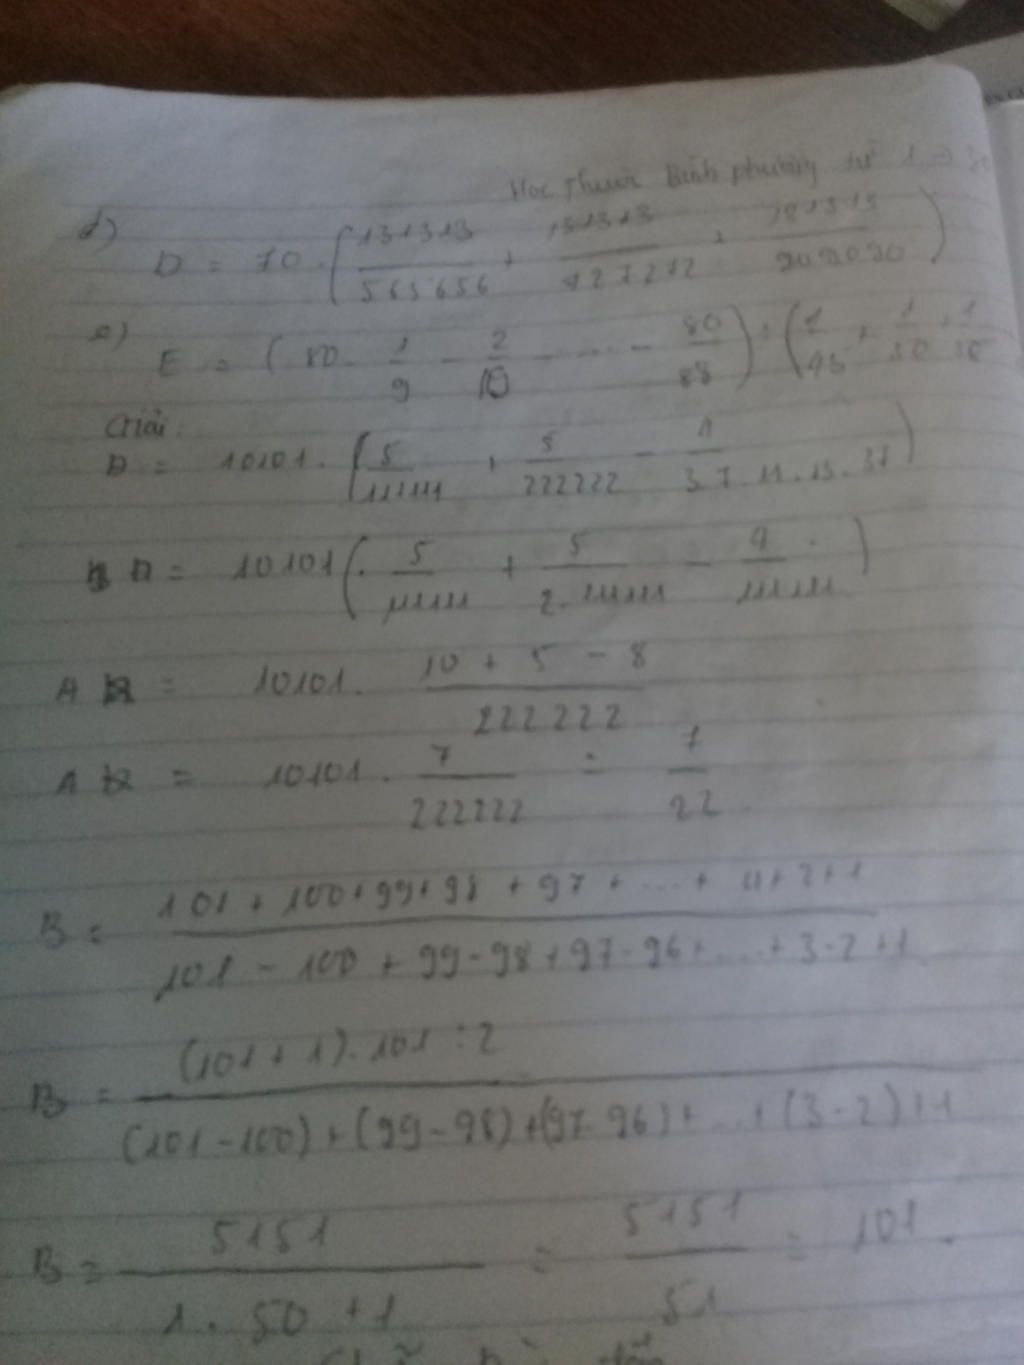 Học thuộc Bình phương từ 1 →
d)
D = 70 . ( 131313/565656 + 131313/727272 + 131313/909090 )
e)
E = ( 80 - 1/9 - 2/10 - ... - 80/88 ) : ( 1/45 + 1/50 + 1/55
Giải:
A = 10101 . ( 5/111111 + 5/222222 - 4/3.7.11.13.37 )
A = 10101 ( . 5/111111 + 5/2.111111 - 4/111111 )
A = 10101 . 10 + 5 - 8/222 222
A = 10101 . 7/222222 = 7/22
B = 101 + 100 + 99 + 98 + 97 + ... + 3 + 2 + 1/101 - 100 + 99 - 98 + 97 - 96 + ... + 3 - 2 + 1
B = (101 + 1) . 101 : 2/(101 - 100) + (99 - 98) + (97 - 96) + ... + (3 - 2) + 1
B = 5151/1 . 50 + 1 = 5151/51 = 101 .